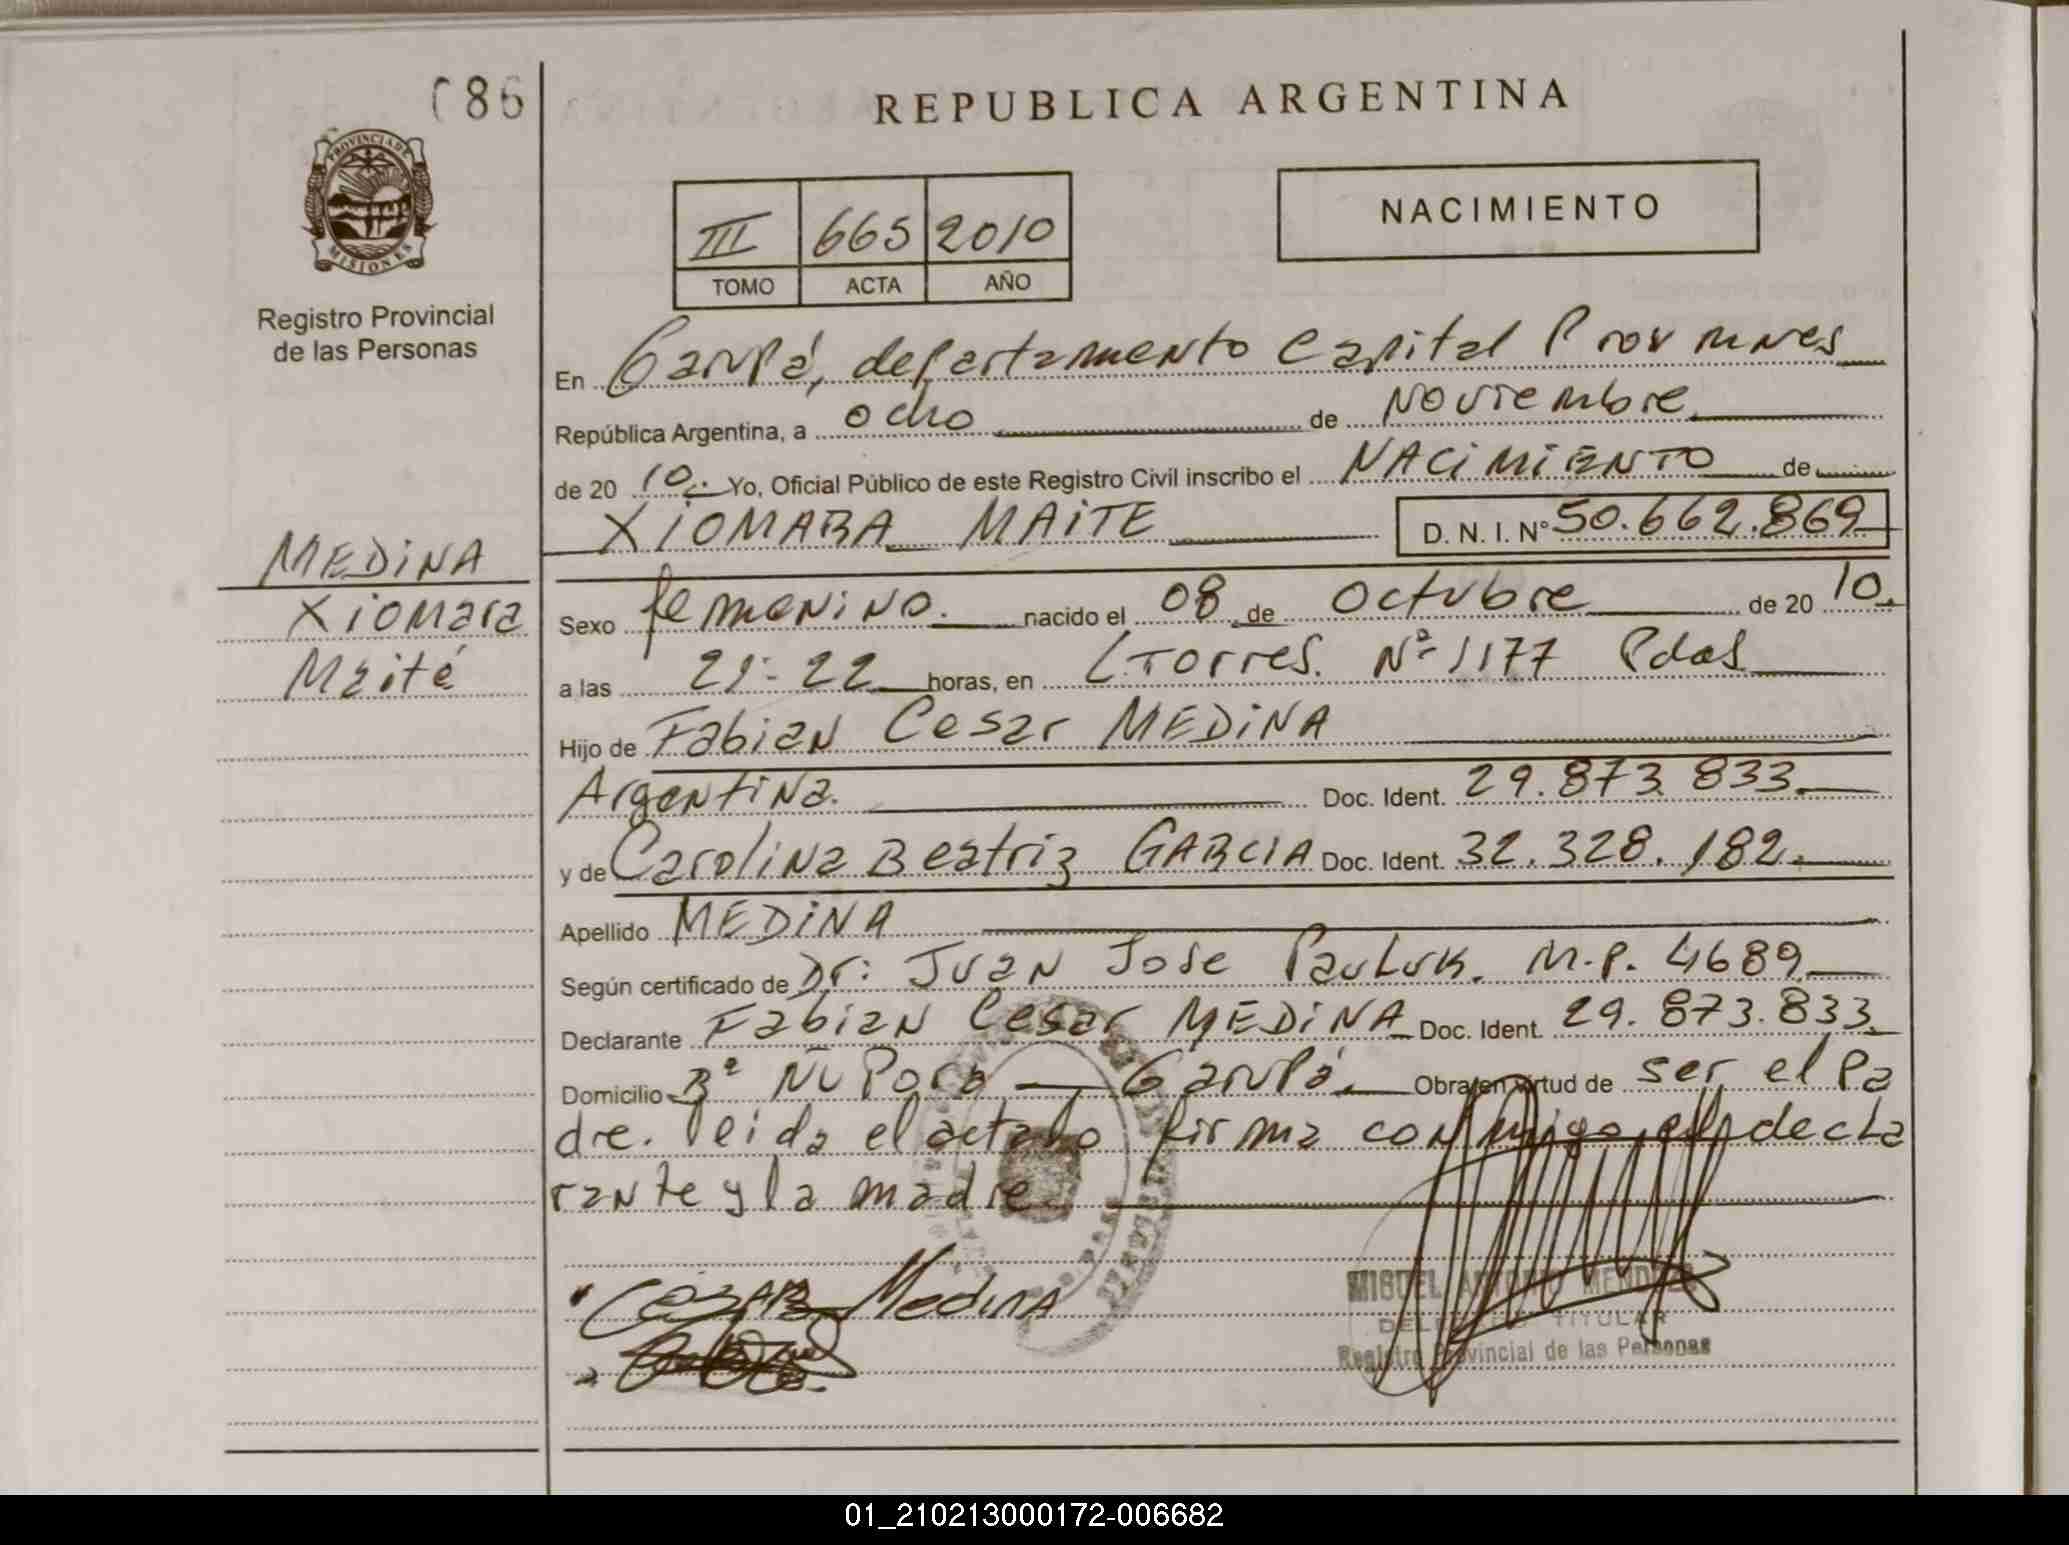 086
REPUBLICA ARGENTINA
PROVINCIA DE
MISIONES
Registro Provincial
de las Personas
III 665 2010
TOMO ACTA AÑO
NACIMIENTO
En Garupá, departamento Capital Prov mnes
República Argentina, a ocho de Noviembre
de 20 10. Yo, Oficial Público de este Registro Civil inscribo el NACIMIENTO de
XIOMARA MAITE D. N. I. Nº 50.662.869
MEDINA
Xiomara
Maité
Sexo femenino. nacido el 08 de Octubre de 20 10.
a las 21:22 horas, en L.Torres. Nº 1177 Pdas
Hijo de Fabian Cesar MEDINA
Argentina. Doc. Ident. 29.873.833.
y de Carolina Beatriz GARCIA Doc. Ident. 32.328.182.
Apellido MEDINA
Según certificado de Dr: Juan Jose Pauluk. M.P. 4689
Declarante Fabian Cesar MEDINA Doc. Ident. 29.873.833
Domicilio Bº Ñu Pora — Garupá. Obra en virtud de ser el Pa
dre. leida el acta lo firma conmigo, el decla
rante y la madre.
Cesar Medina
MIGUEL ANTONIO MENDEZ
DELEGADO TITULAR
Registro Provincial de las Personas
01_210213000172-006682